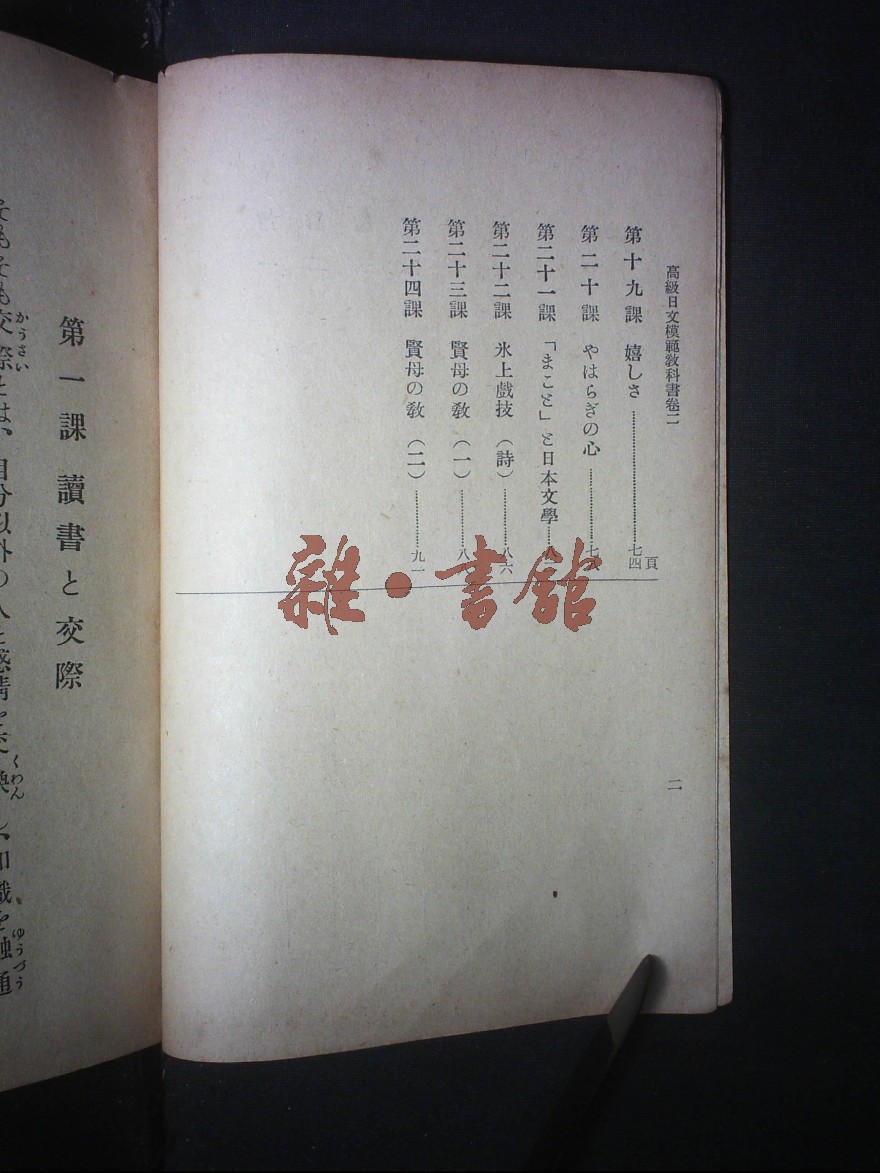 高級日文模範敎科書卷二
二
頁
第十九課 嬉しさ…………七四
第二十課 やはらぎの心…………七
第二十一課 「まこと」と日本文學……八
第二十二課 氷上戲技（詩）…………八六
第二十三課 賢母の敎（一）…………八
第二十四課 賢母の敎（二）…………九一
雜・書館
第一課 讀書と交際
そもそも交際とは、自分以外の人と感情を交換し、知識を融通
かうさい
くわん
ゆうづう